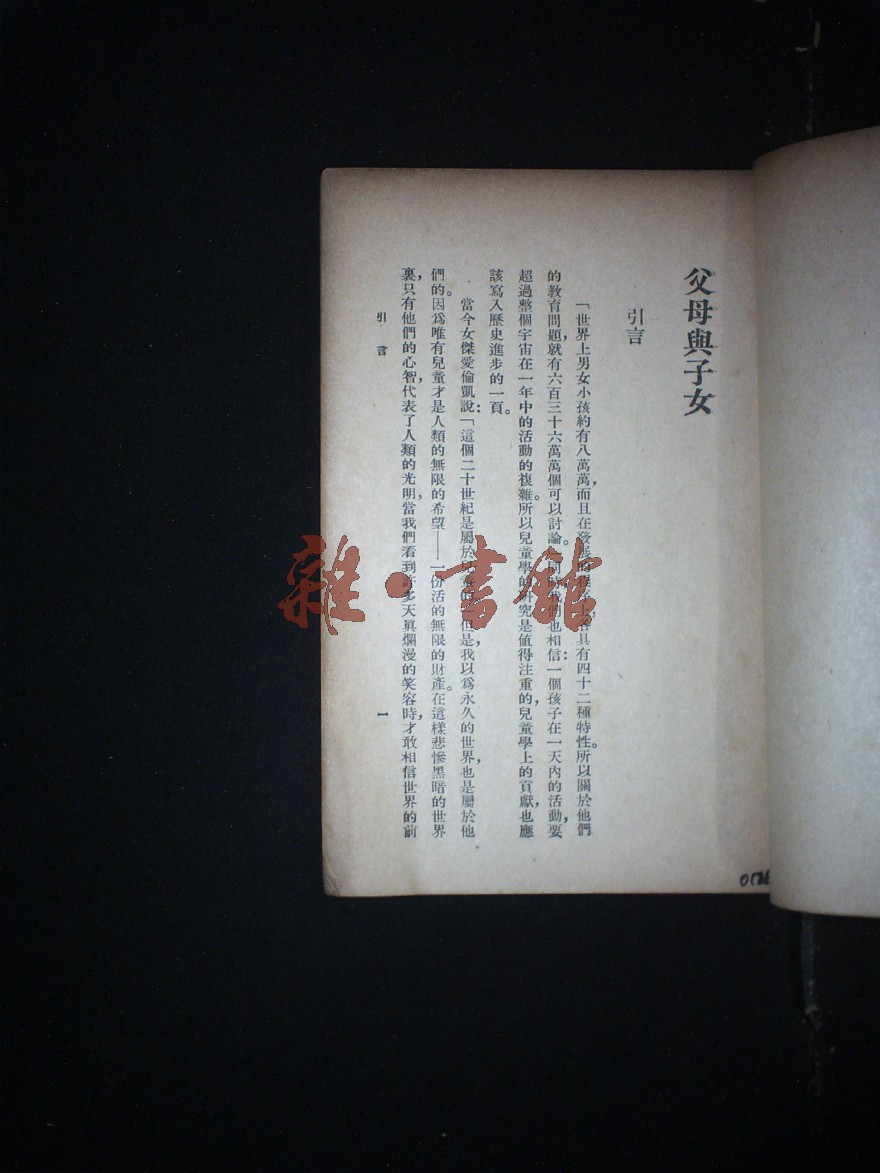 父母與子女
引言
「世界上男女小孩約有八萬萬，而且在發展的程序上，各具有四十二種特性。所以關於他們
的教育問題，就有六百三十六萬萬個可以討論。同時我們也相信：一個孩子在一天內的活動，要
超過整個宇宙在一年中的活動的複雜。所以兒童學的研究是値得注重的，兒童學上的貢獻，也應
該寫入歷史進步的一頁。
當今女傑愛倫凱說：「這個二十世紀是屬於兒童的」但是，我以爲永久的世界，也是屬於他
們的。因爲唯有兒童才是人類的無限的希望——一份活的無限的財產。在這樣悲慘黑暗的世界
裏，只有他們的心智，代表了人類的光明，當我們看到許多天眞爛漫的笑容時，才敢相信世界的前
引言
一
雜·書館